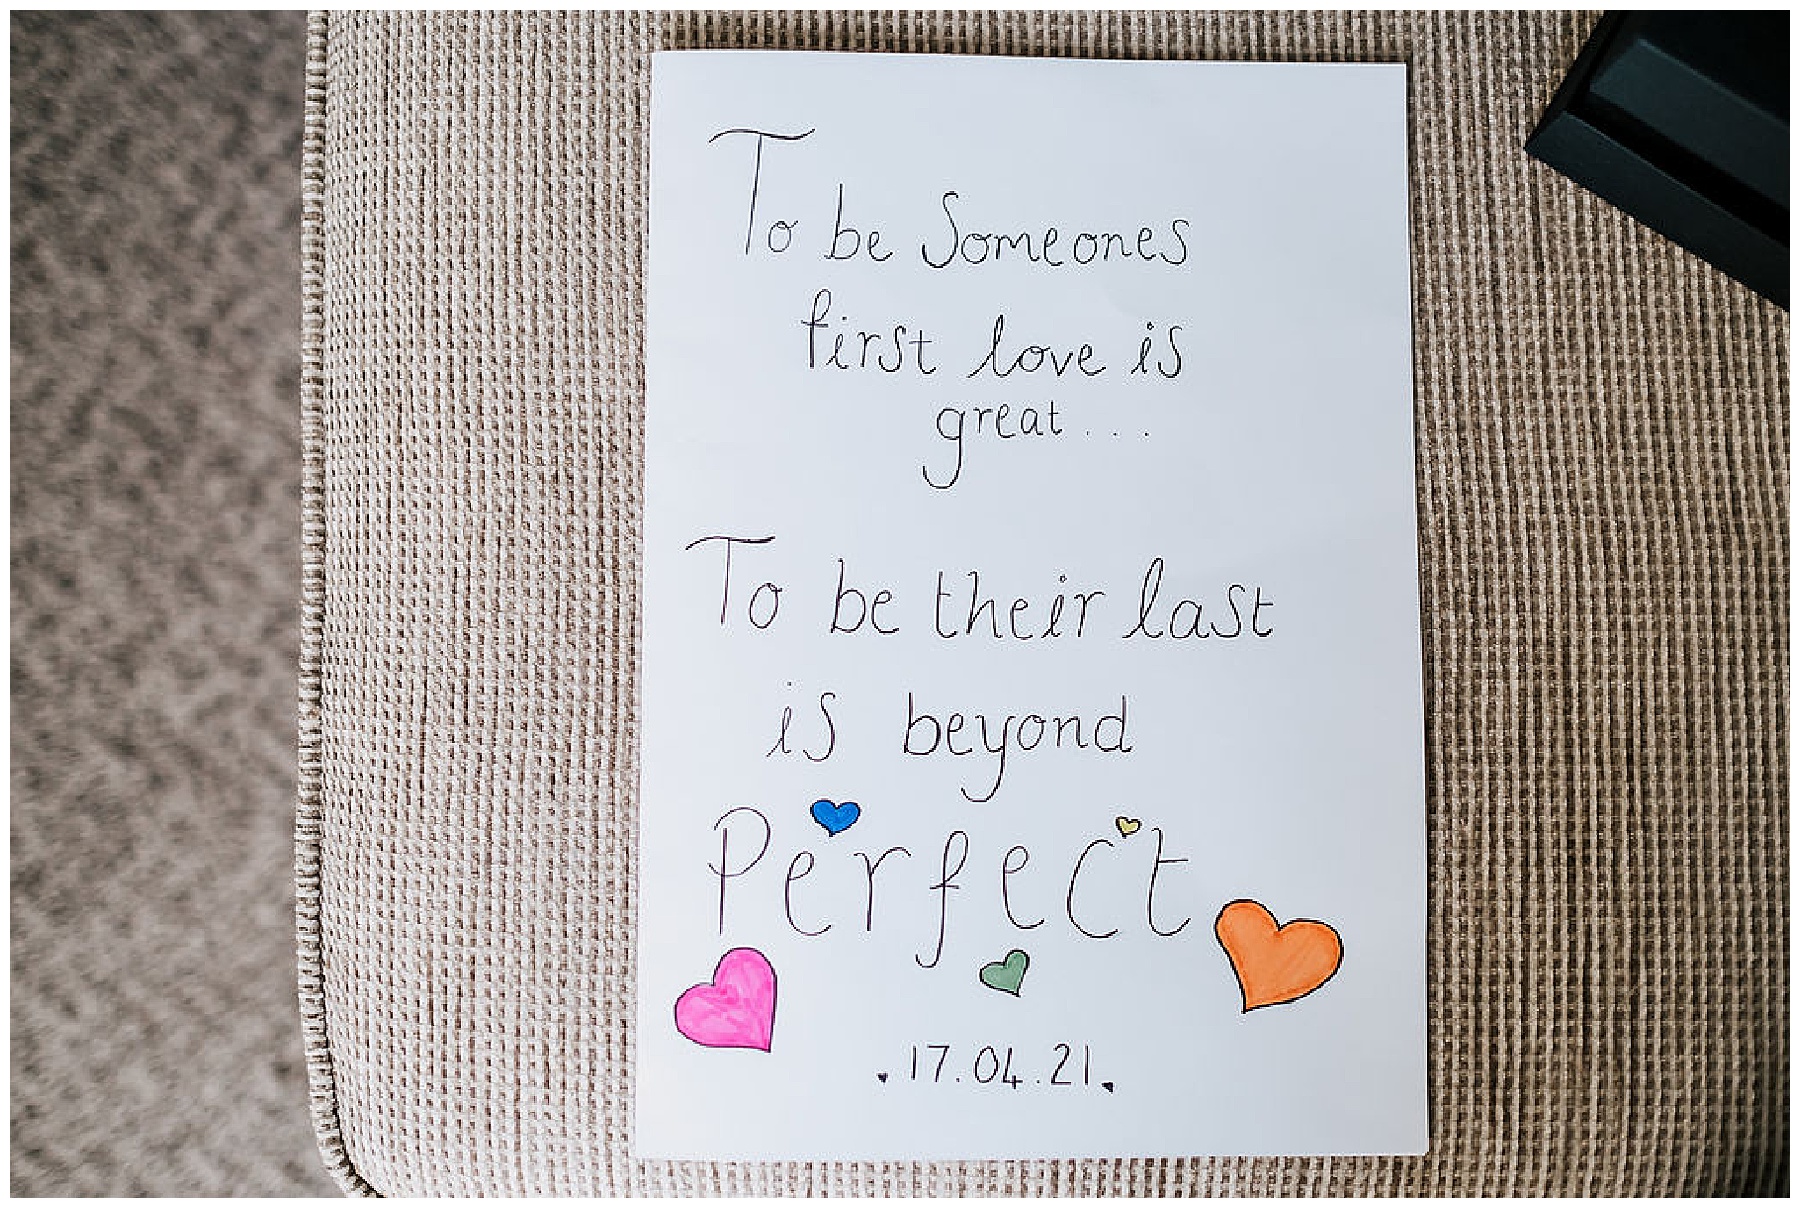 To be Someones
first love is
great...
To be their last
is beyond
Perfect
.17.04.21.